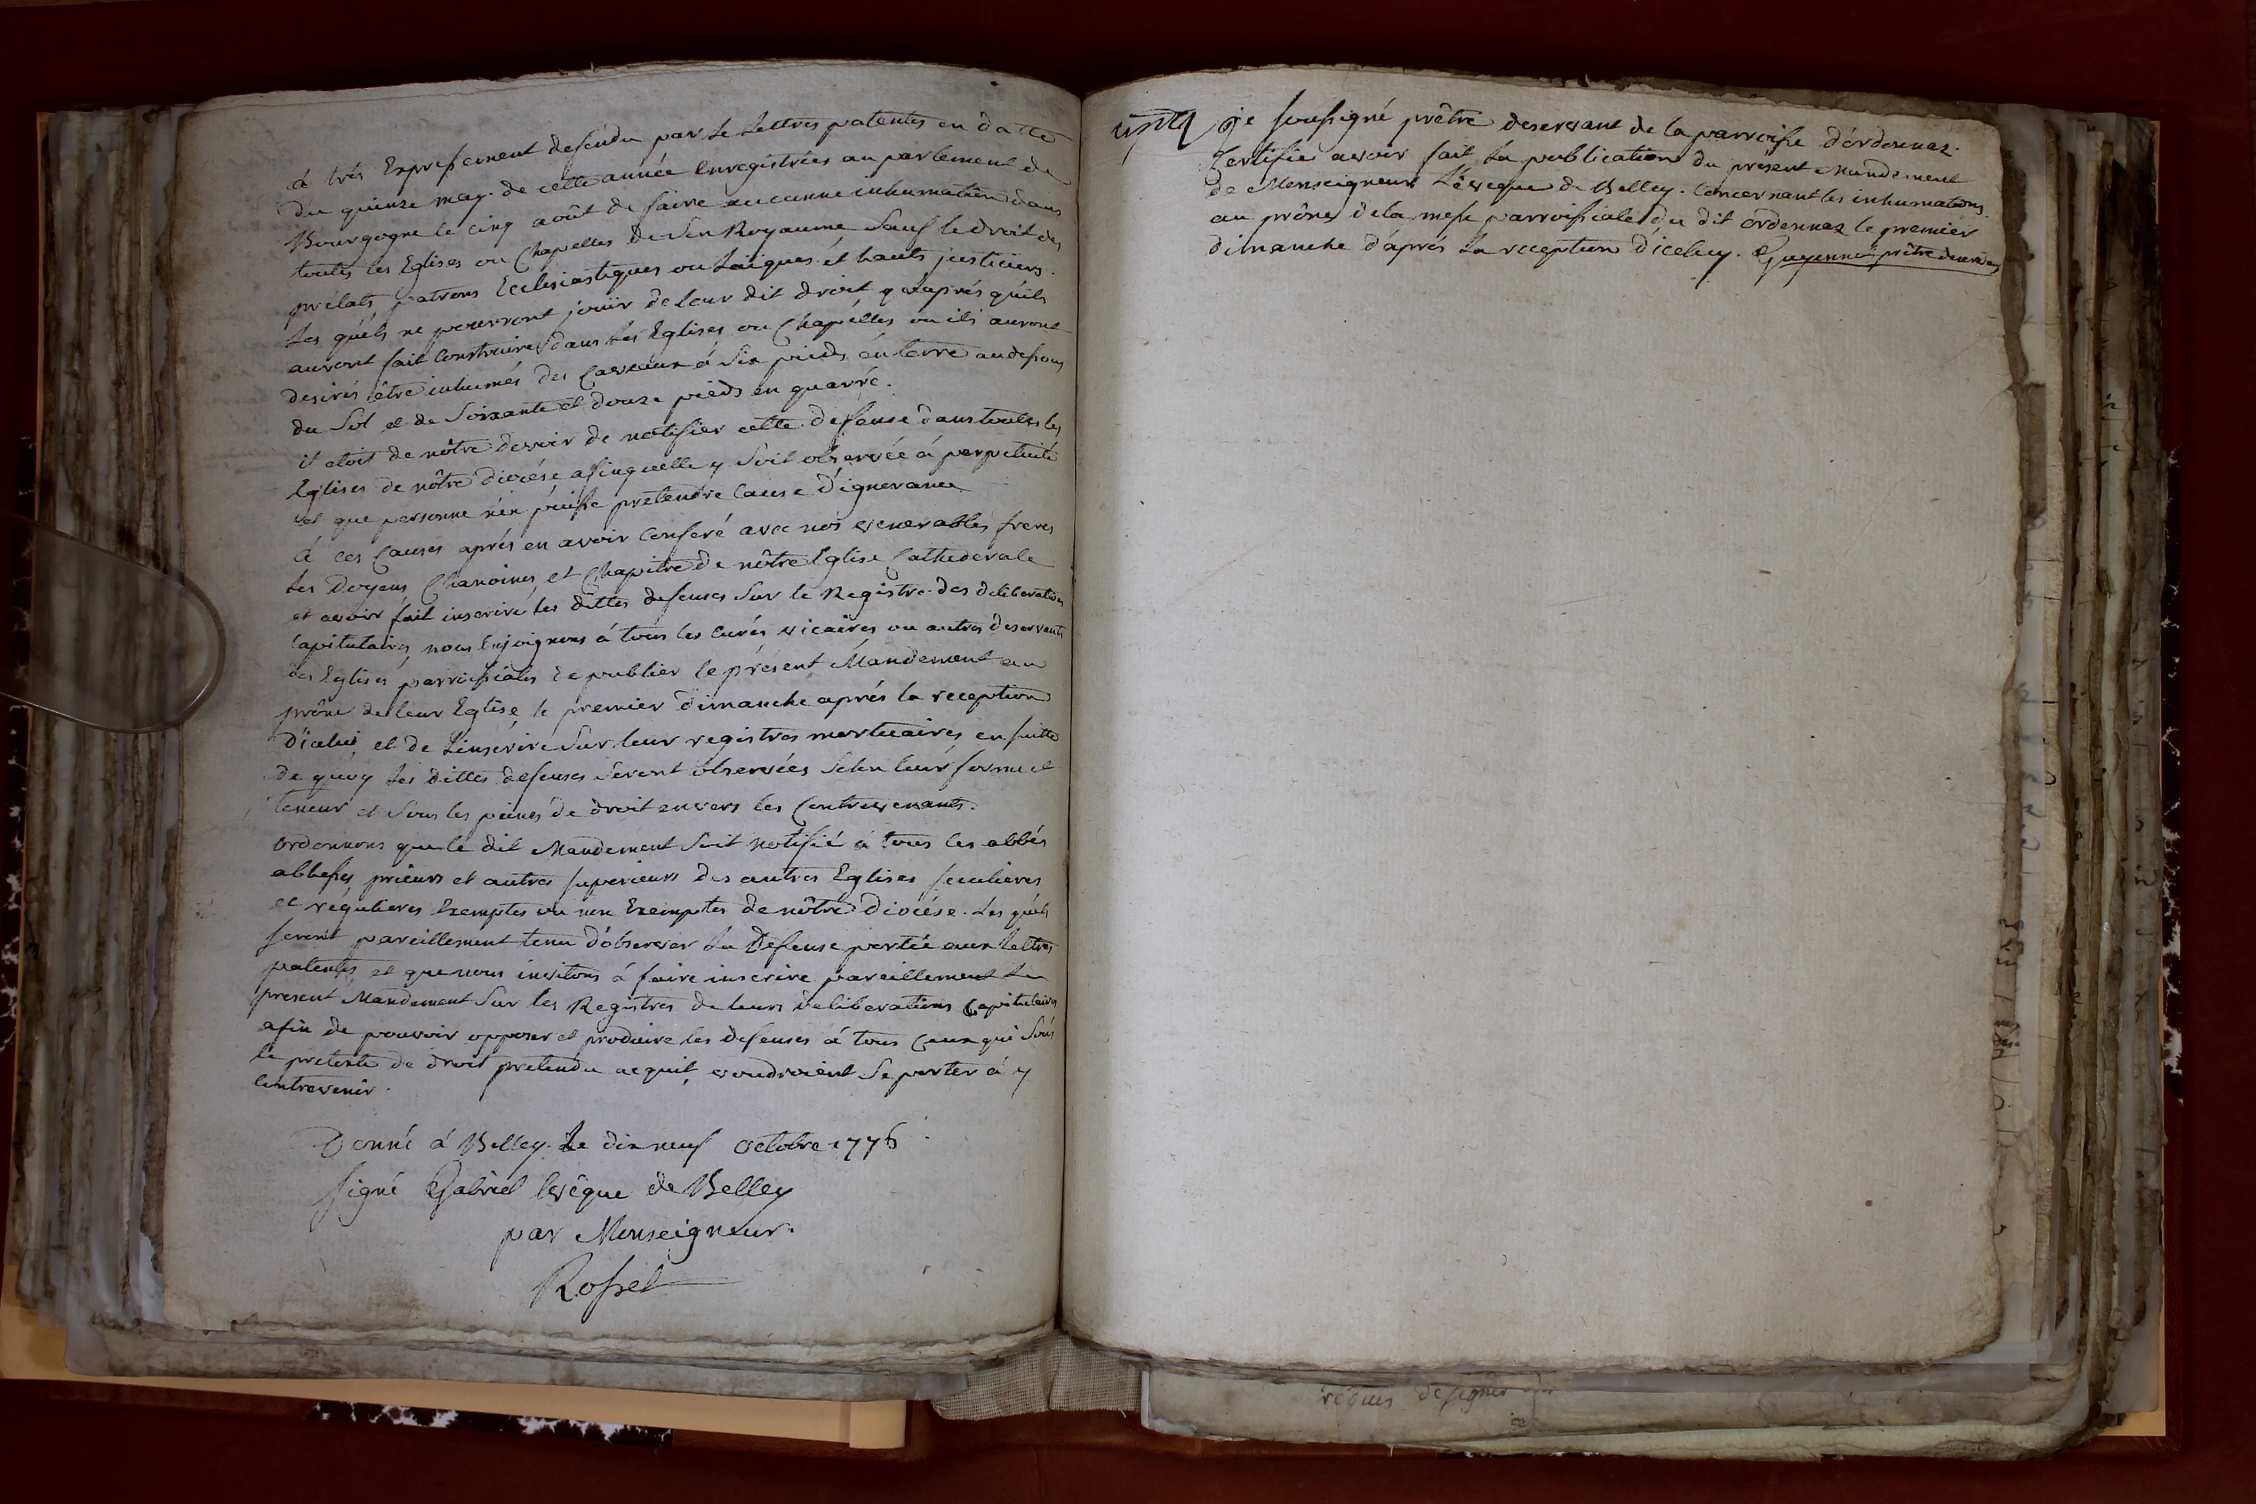 à très Expressement defendu par se Lettres patentes en datte
du quinze may de cette année Enregistrées au parlement de
Bourgogne le cinq août de faire aucunne inhumation dans
toutes les Eglises ou Chapelles de Son Royaume Sauf le droit des
prélats, patrons Ecclesiastiques ou Laïques et hauts justiciers.
Les quéls ne pourront joüir de leur dit droit qu'après qu'ils
auront fait Construire dans les Eglises ou Chapélles ou ils auront
desirés être inhumés des Caveaux à Six pieds en terre audessous
du Sol et de Soixante et douze pieds en quarré.
il etoit de nôtre devoir de notifier cette defense dans toutes les
Eglises de nôtre diocése afinquelle y Soit observée à perpetuité
et que personne n'en puisse prétendre Cause d'ignorance
à ces Causes aprés en avoir Conferé avec nos venerables freres
les Doyens, Chanoines, et Chapitre de nôtre Eglise Cathederale
et avoir fait inscrire les dittes defenses Sur le Registre des deliberations
Capitulaires, nous Enjoignons à tous les curés vicaires ou autres deservants
des Eglises parroissiales de publier le présent Mandement au
prône de leur Eglise le premier dimanche aprés la reception
d'icelui et de L'inscrire Sur leur registres mortuaires, en suitte
de quoy les dittes defenses Seront observées Selon leur forme et
teneur et Sous les peines de droit envers les Contrevenants.
ordonnons que le dit Mandement Soit notifié à tous les abbés
abbesses, prieurs et autres superieurs des autres Eglises seculieres
et régulieres Exemptes ou non Exemptes de nôtre diocése. Les quels
seront pareillement tenu d'observer La Défense portée aux Lettres
patentes, et que nous invitons à faire inscrire pareillement Le
present Mandement Sur les Registres de leurs déliberations Capitulaires
afin de pouvoir opposer et produire les defenses à tous Ceux qui Sous
le pretexte de droit pretendu acquit, voudroient Se porter à y
Contrevenir.
Donné à Belley. Le dix neuf octobre 1776
signé Gabriel Evêque de Belley
par Monseigneur.
Rosset
je soussigné prêtre deservant de la parroisse d'ordonnaz.
Certifie avoir fait La publication du présent Mandement
de Monseigneur L'éveque de Belley. Concernant les inhumations.
au prône de la messe parroissiale du dit ordonnaz le premier
dimanche d'aprés La reception d'iceluy. Guyennet prêtre deservant
réquis de signer